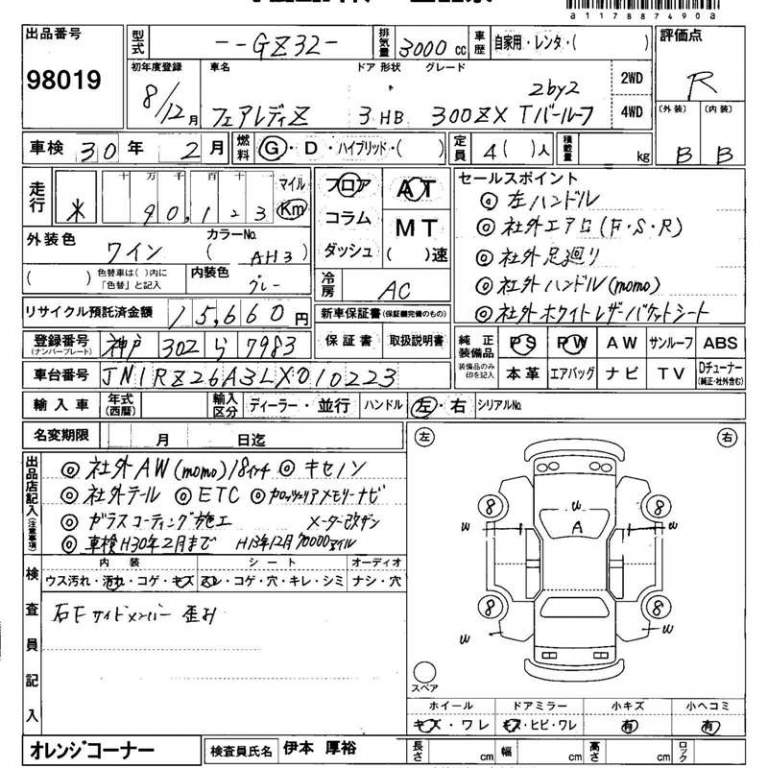 a117887490a
出品番号 型式 --GZ32- 排気量 3000 cc 車歴 自家用・レンタ・( ) 評価点
98019 R
初年度登録 車名 ドア 形状 グレード
8/12月 フェアレディZ 3 HB 300ZX Tバールーフ 2by2 2WD 4WD
(外装) (内装)
B B
車検 30年 2月 燃料 G・D・ハイブリッド・( ) 定員 4( )人 積載量 kg
走行 十 万 千 百 十 マイル
* 90,123 Km
フロア AT
コラム MT
ダッシュ ( )速
セールスポイント
◎左ハンドル
◎社外エアロ(F・S・R)
◎社外足廻り
◎社外ハンドル(momo)
◎社外ホワイトレザーバケットシート
外装色 ワイン カラーNo. ( AH3 )
( ) 色替車は( )内に「色替」と記入 内装色 グレー
冷房 AC
リサイクル預託済金額 15,660円
新車保証書(保証欄完備のもの)
保証書 取扱説明書
登録番号 (ナンバープレート) 神戸 302 ら 7983
純正装備品 PS PW AW サンルーフ ABS
装備品のみ印を記入 本革 エアバッグ ナビ TV Dチューナー (純正・社外含む)
車台番号 JN1RZ26A3LX010223
輸入車 年式(西暦) 輸入区分 ディーラー・並行 ハンドル 左・右 シリアルNo.
名変期限 月 日迄
左 右
出品店記入(注意事項)
◎社外AW(momo)18インチ ◎キセノン
◎社外テール ◎ETC ◎カロッツェリアメモリーナビ
◎ガラスコーティング施工 メーター改ザン
◎車検H30年2月まで H13年12月70000マイル
内装 シート オーディオ
ウス汚れ・汚れ・コゲ・キズ スレ・コゲ・穴・キレ・シミ ナシ・穴
検査員記入
右Fサイドメンバー歪み
8 w 8
w A w
8 8
w w
スペア
ホイール ドアミラー 小キズ 小ヘコミ
キズ・ワレ キズ・ヒビ・ワレ 有 有
オレンジコーナー 検査員氏名 伊本 厚裕 長さ cm 幅 cm 高さ cm ロック